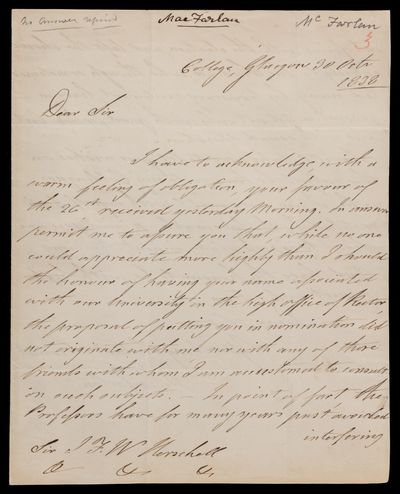 No answer required
MacFarlan
Mc Farlan
3
College, Glasgow 30 Octr
1838
Dear Sir
I have to acknowledge with a
warm feeling of obligation, your favour of
the 26th received yesterday Morning. In answer
permit me to assure you that, while no one
could appreciate more highly than I should
the honour of having your name associated
with our University in the high office of Rector,
the proposal of putting you in nomination did
not originate with me nor with any of those
friends with whom I am accustomed to consult
on such subjects. — In point of fact the
Professors have for many years past avoided
interfering
Sir J F. W Herschell
& & &,